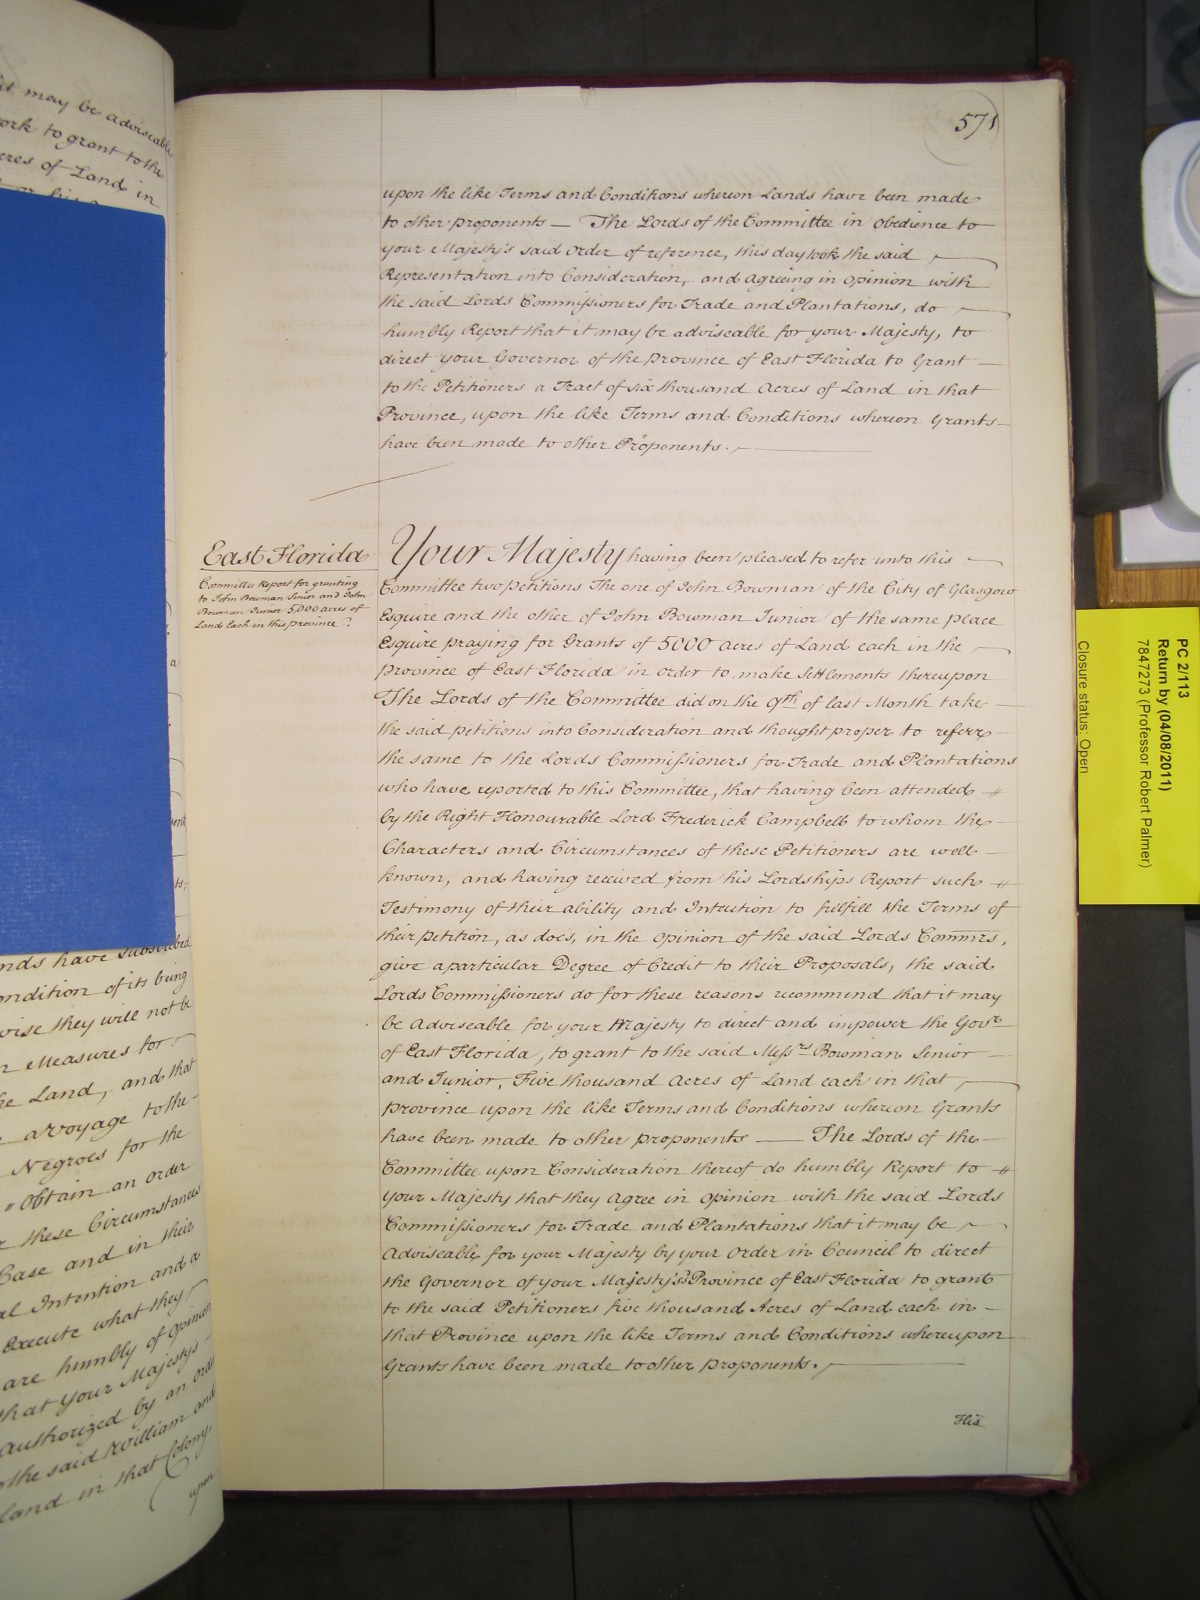 it may be adviseable
ork to grant to the
cres of Land in
nds have subscribed
ondition of its being
wise they will not be
n Measures for
he Land, and that
a Voyage to the
Negroes for the
" Obtain an order
r these Circumstances
Case and in their
al Intention and a
Execute what they
are humbly of Opinion
that Your Majesty's
authorized by an Order
the said William and
Land in that Colony,
upon
571
upon the like Terms and Conditions whereon Lands have been made
to other proponents — The Lords of the Committee in Obedience to
your Majesty's said Order of reference, this day took the said
Representation into Consideration, and agreeing in opinion with
the said Lords Commissioners for Trade and Plantations, do
humbly Report that it may be adviseable for your Majesty, to
direct your Governor of the Province of East Florida to Grant
to the Petitioners a Tract of six thousand Acres of Land in that
Province, upon the like Terms and Conditions whereon Grants
have been made to other Proponents.
East Florida
Committee Report for granting
to John Bowman Senior and John
Bowman Junior 5,000 acres of
Land Each in this province
Your Majesty having been pleased to refer unto this
Committee two petitions The one of John Bowman of the City of Glasgow
Esquire and the other of John Bowman Junior of the same place
Esquire praying for Grants of 5000 Acres of Land each in the
Province of East Florida in order to make Settlements thereupon
The Lords of the Committee did on the 9th of last Month take
the said petitions into Consideration and thought proper to referr
the same to the Lords Commissioners for Trade and Plantations
who have reported to this Committee, that having been attended
by the Right Honourable Lord Frederick Campbell to whom the
Characters and Circumstances of these Petitioners are well
known, and having received from his Lordships Report such
Testimony of their ability and Intention to fulfill the Terms of
their petition, as does, in the opinion of the said Lords Commrs,
give a particular Degree of Credit to their Proposals, the said
Lords Commissioners do for these reasons recommend that it may
be Adviseable for your Majesty to direct and impower the Govr
of East Florida, to grant to the said Messrs Bowman Senior
and Junior, Five thousand Acres of Land each in that
Province upon the like Terms and Conditions whereon Grants
have been made to other proponents — The Lords of the
Committee upon Consideration thereof do humbly Report to
your Majesty that they Agree in Opinion with the said Lords
Commissioners for Trade and Plantations that it may be
Adviseable for your Majesty by your Order in Council to direct
the Governor of your Majesty's Province of East Florida to grant
to the said Petitioners five thousand Acres of Land each in
that Province upon the like Terms and Conditions whereupon
Grants have been made to other proponents.
His
PC 2/113
Return by (04/08/2011)
7847273 (Professor Robert Palmer)
Closure status: Open